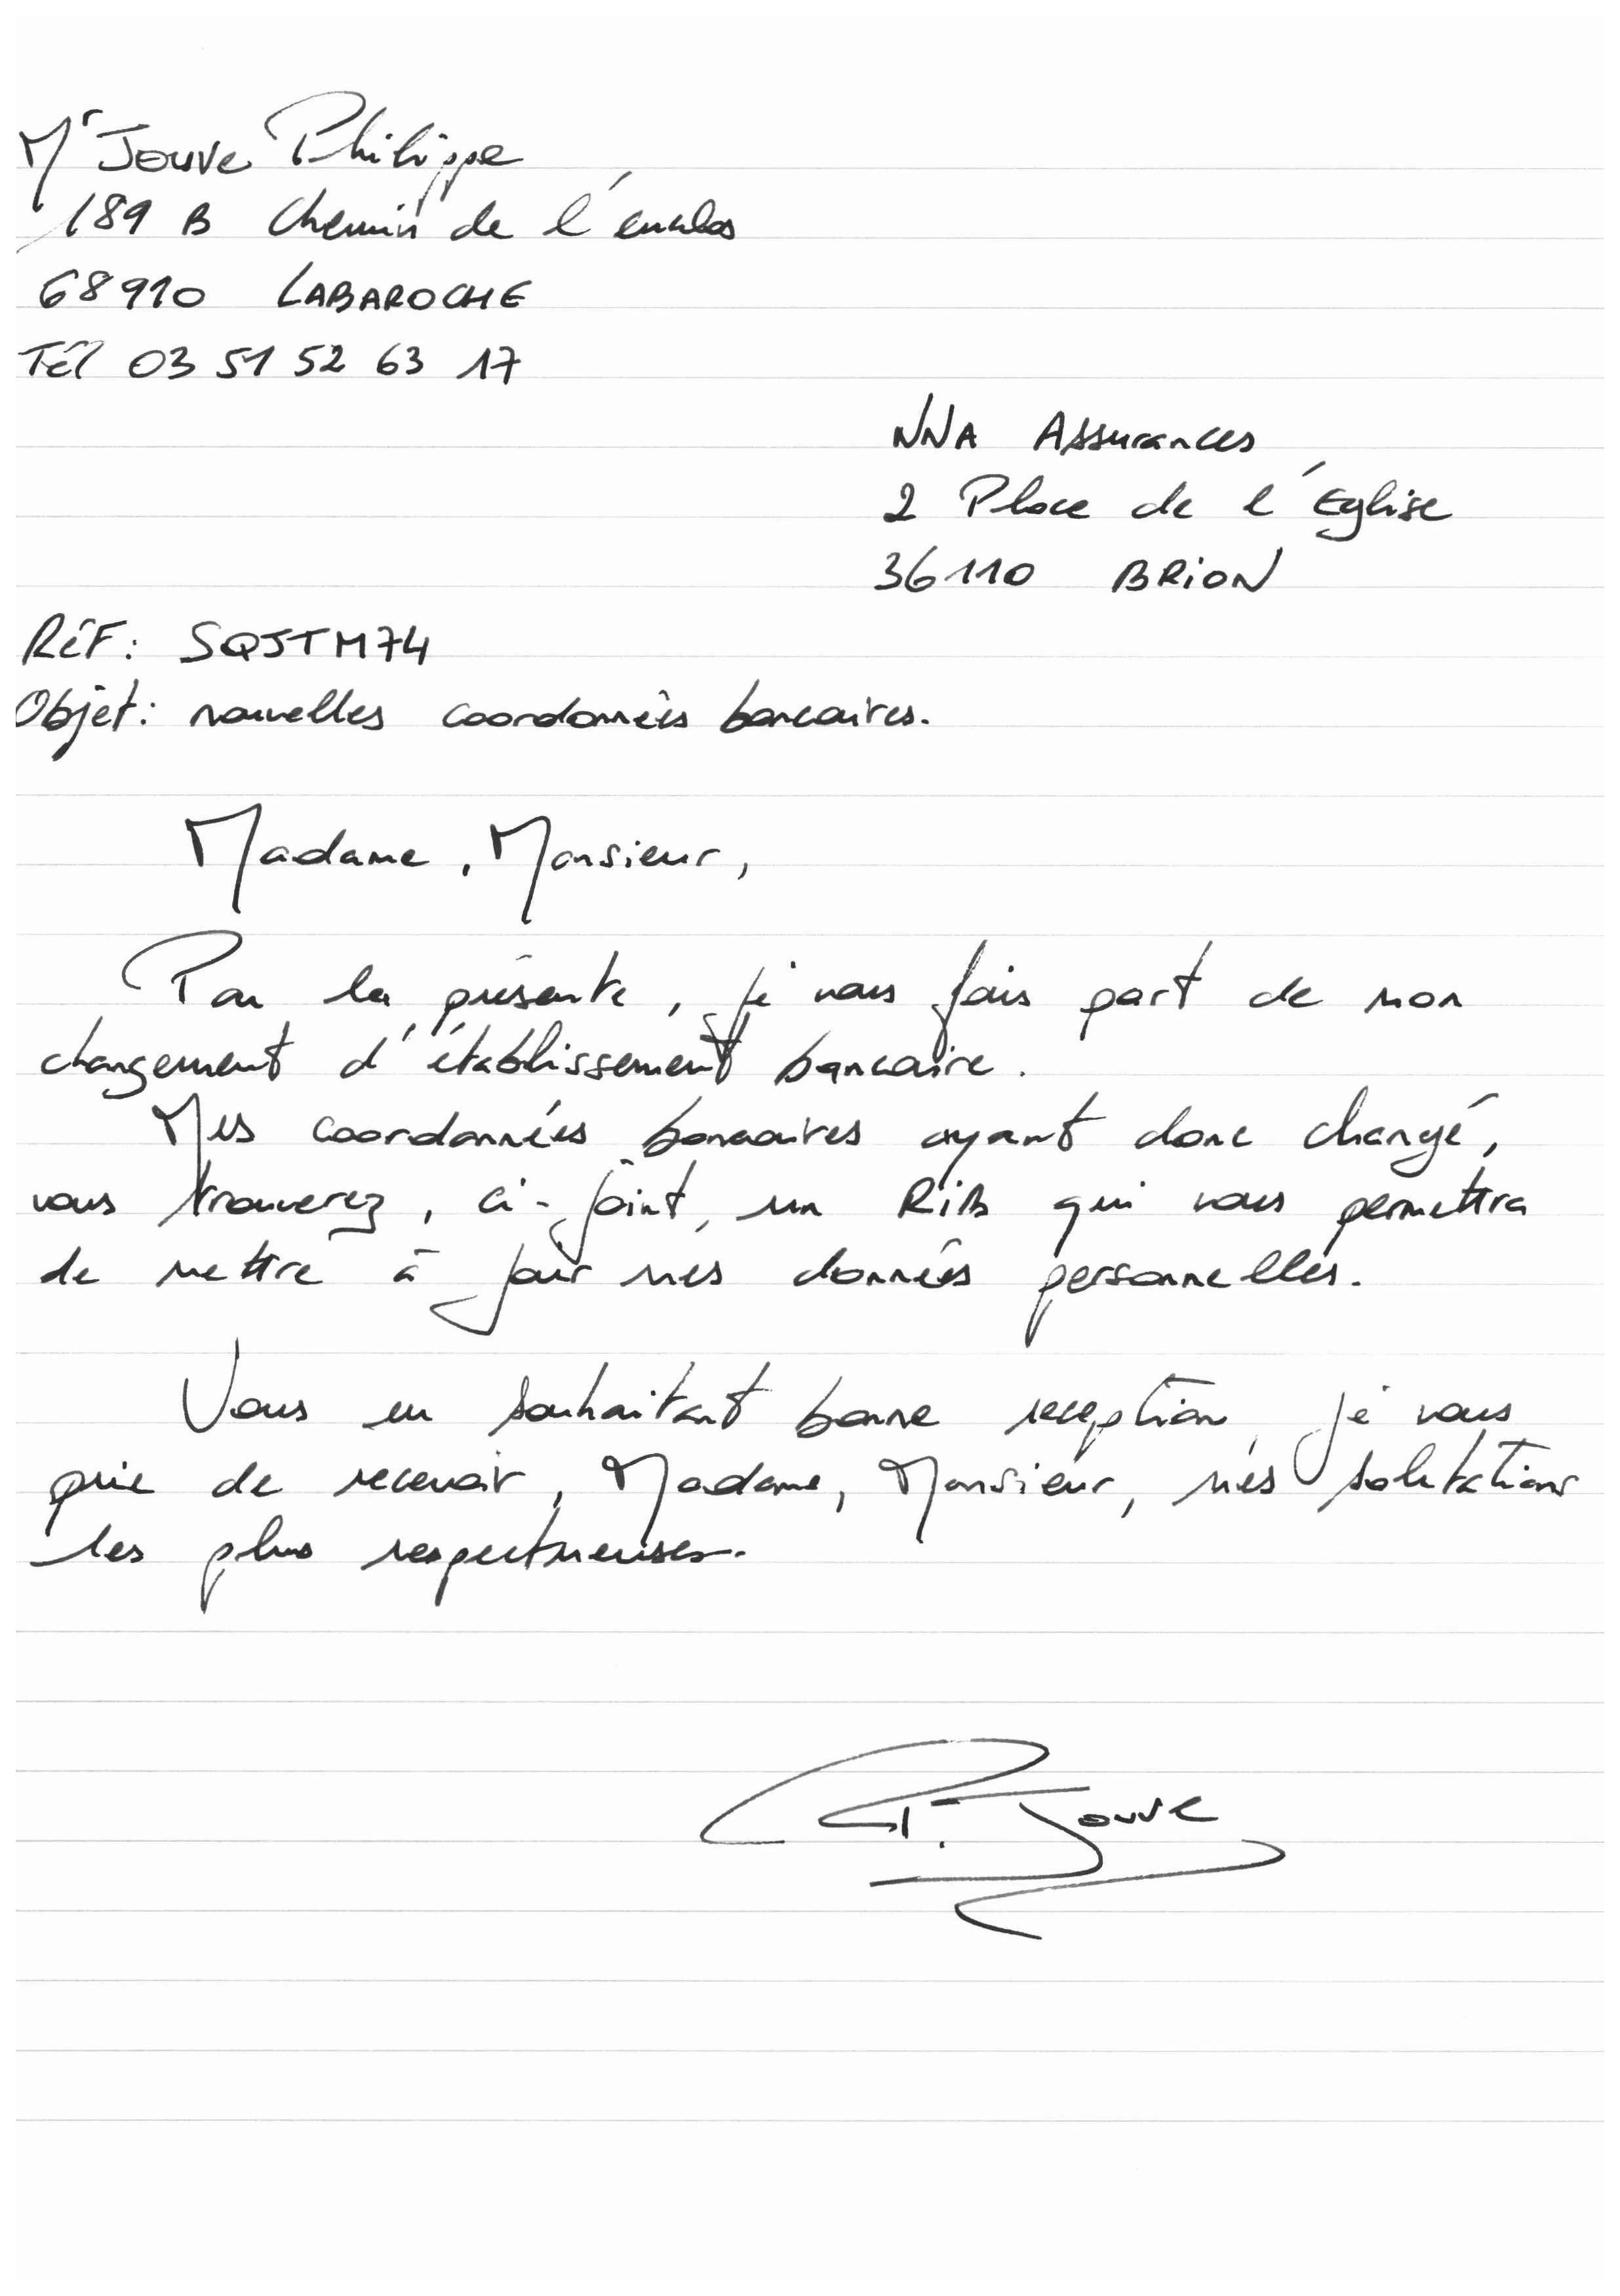 Mr Jouve Philippe
189 B Chemin de l'enclos
68910 LABAROCHE
Tél 03 51 52 63 17
NNA Assurances
2 Place de l'Eglise
36110 BRION
Réf: SQJTM74
Objet: nouvelles coordonnées bancaires.
Madame, Monsieur,
Par la présente, je vous fais part de mon
changement d'établissement bancaire.
Mes coordonnées bancaires ayant donc changé,
vous trouverez, ci-joint, un RiB qui vous permettra
de mettre à jour mes données personnelles.
Vous en souhaitant bonne reception, je vous
prie de recevoir, Madame, Monsieur, mes salutations
les plus respectueuses.
P. Jouve